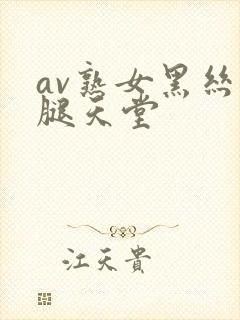 av熟女黑丝
腿天堂
江天貴